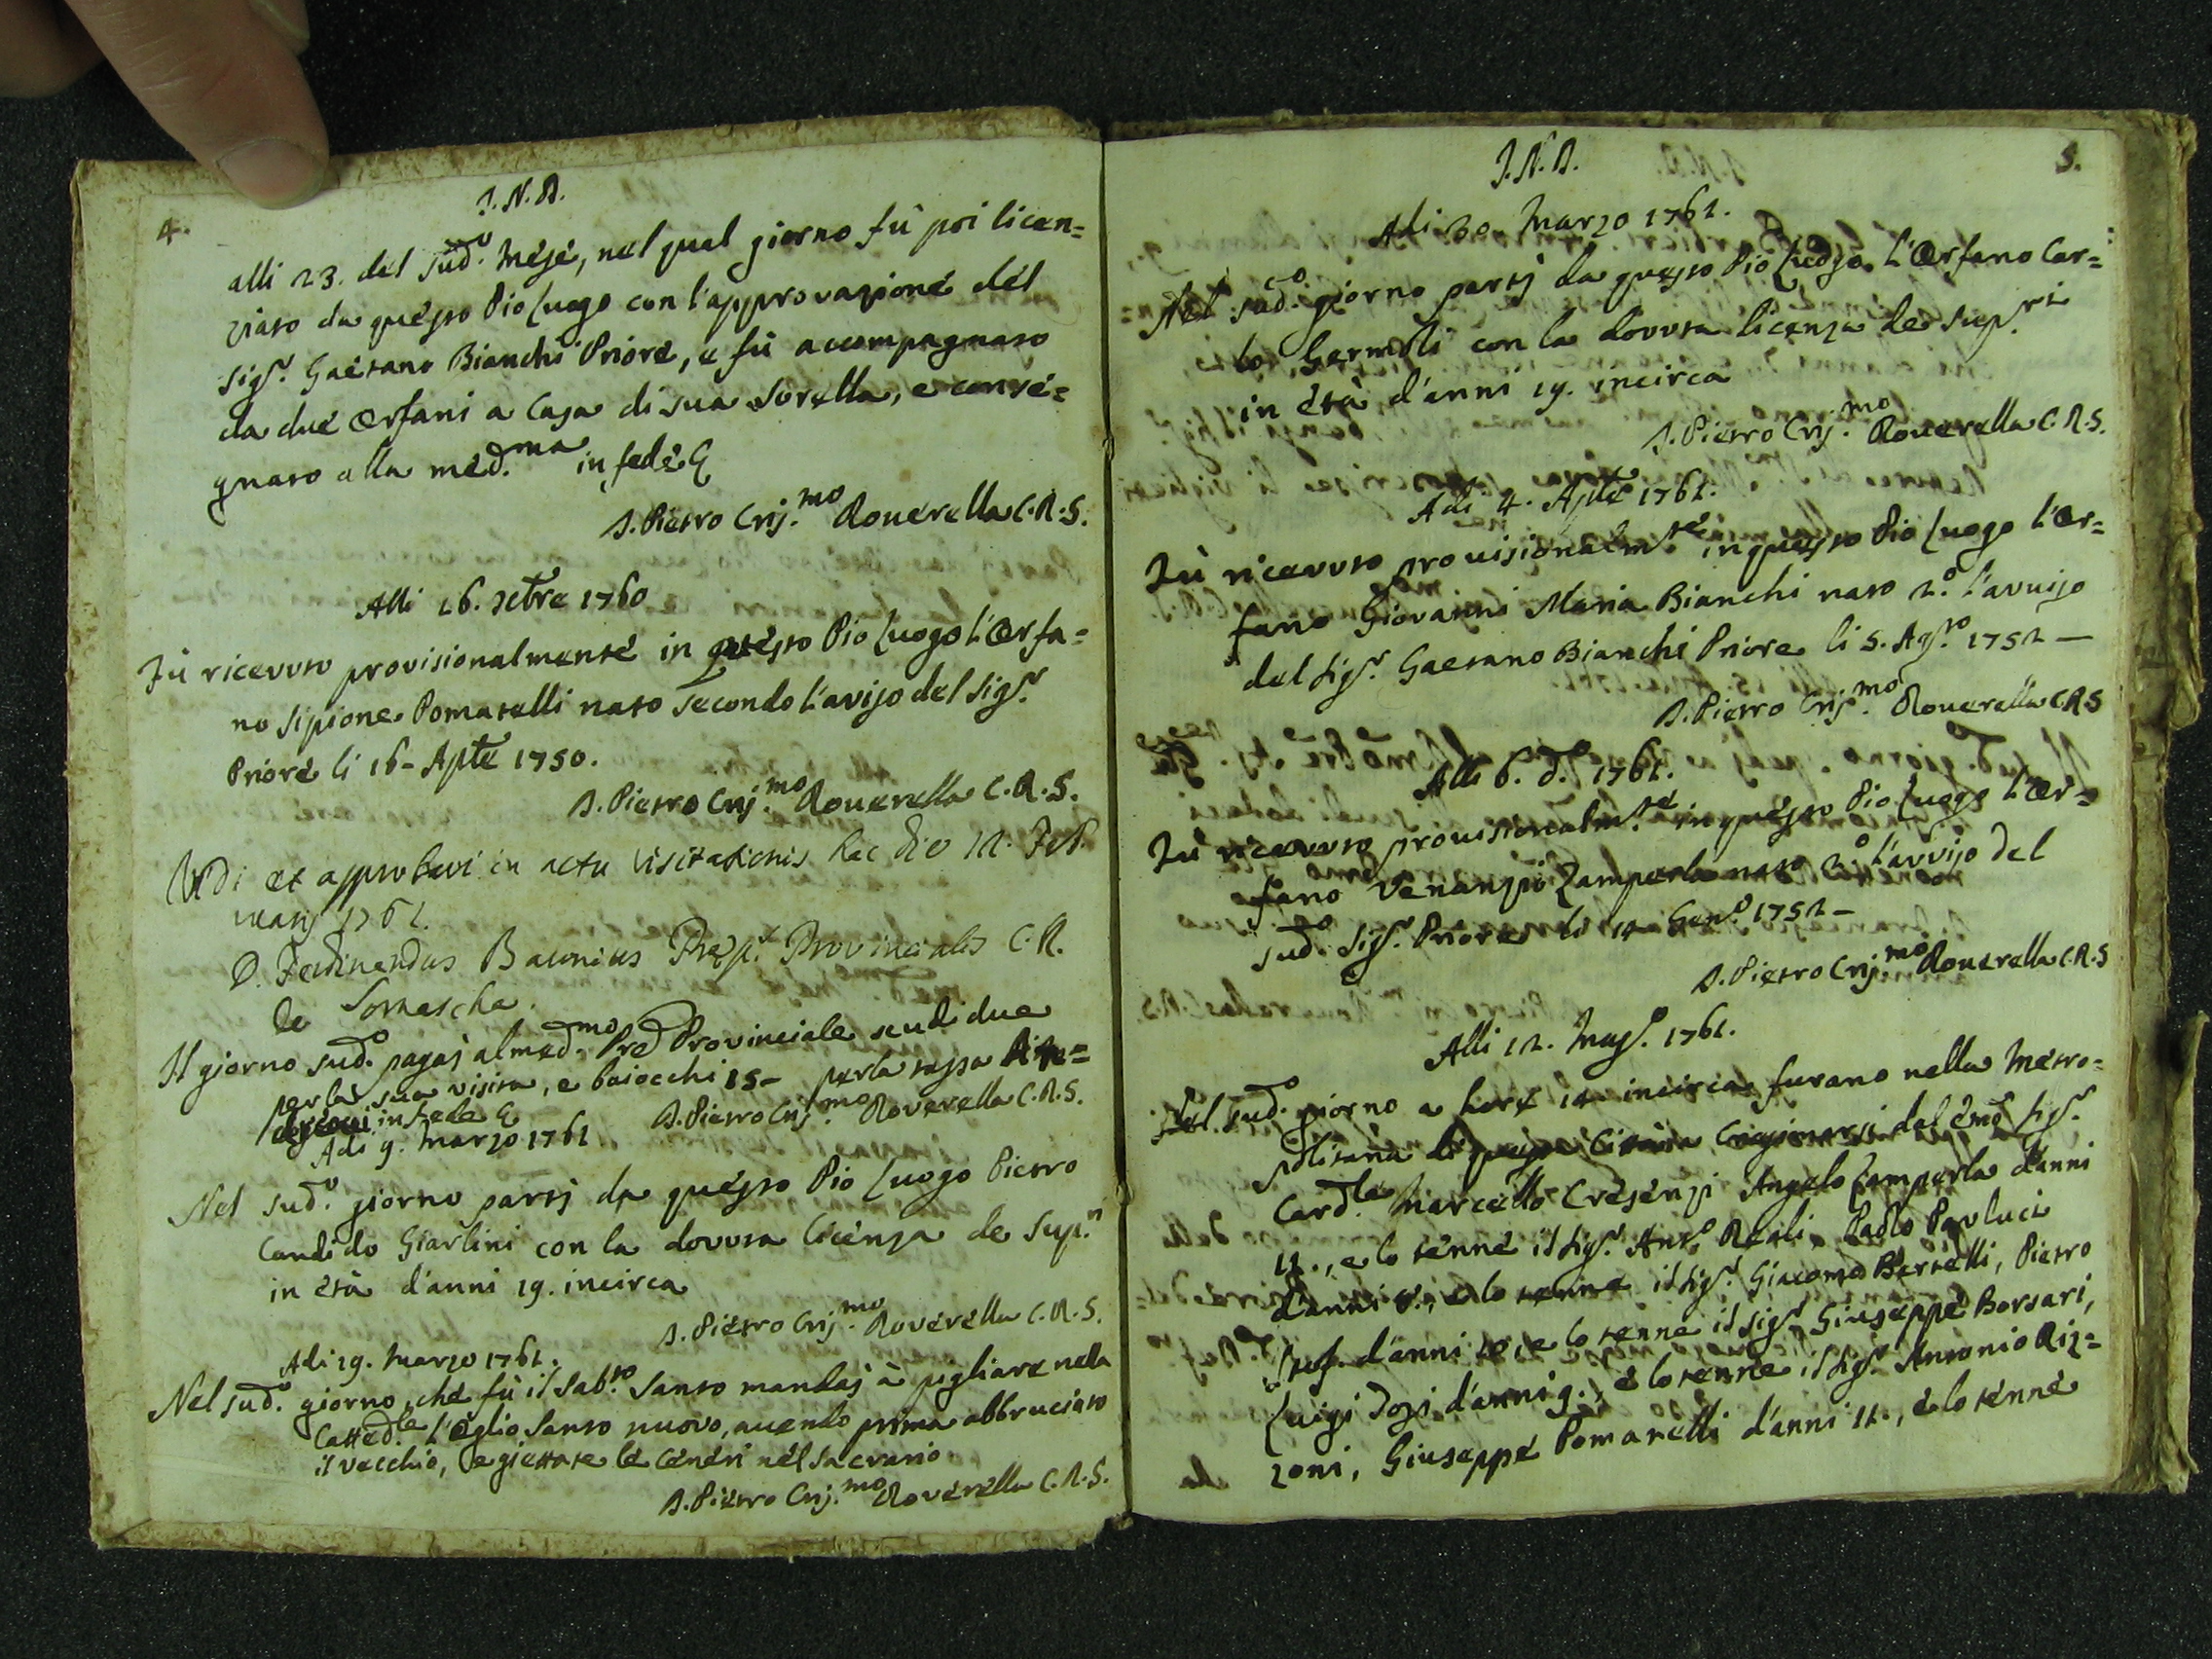 4.
J. N. D.
alli 23. del sud.º Mese, nel qual giorno fù poi licen=
ziato da questo Pio Luogo con l'approvazione del
Sigr. Gaetano Bianchi Priore, e fù accompagnato
da due Orfani a Casa di sua Sorella, e conse=
gnato alla med.ma in fede &
D. Pietro Crij.mo Roverella C. R. S.
Alli 26. 7bre 1760
Fù ricevuto provisionalmente in questo Pio Luogo l'Orfa=
no Sipione Pomatelli nato secondo l'aviso del Sigr.
Priore li 16- Aple 1750.
D. Pietro Crij.mo Roverella C. R. S.
Vidi et approbavi in actu Visitationis hac die 12. Feb.
1761.
D. Ferdinandus Baronius Præp.s Provincialis C. R.
de Somascha.
Il giorno sud.º pagaj al med.mo Pre Provinciale scudi due
per la sua visita, e baiocchi 15- per la tassa
in fede &
D. Pietro Crij.mo Roverella C. R. S.
Adi 9. Marzo 1761
Nel sud.º giorno partj da questo Pio Luogo Pietro
Candido Giarlini con la dovuta licenza de Sup.ri
in età d'anni 19. incirca
D. Pietro Crij.mo Roverella C. R. S.
Adi 19. Marzo 1761.
Nel sud.º giorno, che fù il Sab.to Santo mandaj à pigliare nella
Catted.le l'Oglio Santo nuovo, avendo prima abbruciato
il vecchio, e giettate le ceneri nel Sacrario
D. Pietro Crij.mo Roverella C. R. S.
5.
J. N. D.
Adi 30. Marzo 1761.
Nel sud.º giorno partj da questo Pio Luogo l'Orfano Car=
lo Germoli con la dovuta licenza de Sup.ri
in età d'anni 19. incirca
D. Pietro Crij.mo Roverella C. R. S.
Adi 4. Aple 1761.
Fù ricevuto provisionalm.te in questo Pio Luogo l'Or=
fano Giovanni Maria Bianchi nato 2.º l'avviso
del Sigr. Gaetano Bianchi Priore li 5. Ag.to 1751 —
D. Pietro Crij.mo Roverella C. R. S
Alli 6. d.º 1761.
Fù ricevuto provisionalm.te in questo Pio Luogo l'Or=
fano Venanzio Zamperla nato 2.º l'avviso del
sud.º Sigr. Priore li 14 Gen.º 1751 —
D. Pietro Crij.mo Roverella C. R. S
Alli 12. Magº. 1761.
Nel sud.º giorno a hore 14 incirca furano nella Metro=
politana di questa Città Cresimati dal Emo Sigr.
Card.le Marcello Cresenzi Angelo Zamperla d'anni
11., e lo tenne il Sigr. Ant.º Reali, Paolo Pavluci
d'anni 8., e lo tenne il Sigr. Giacomo Bertelli, Pietro
d'anni 10, e lo tenne il Sigr. Giuseppe Borsari,
Luigi Dozi d'anni 9., e lo tenne il Sigr. Antonio Riz=
zoni, Giuseppe Pomatelli d'anni 11., e lo tenne